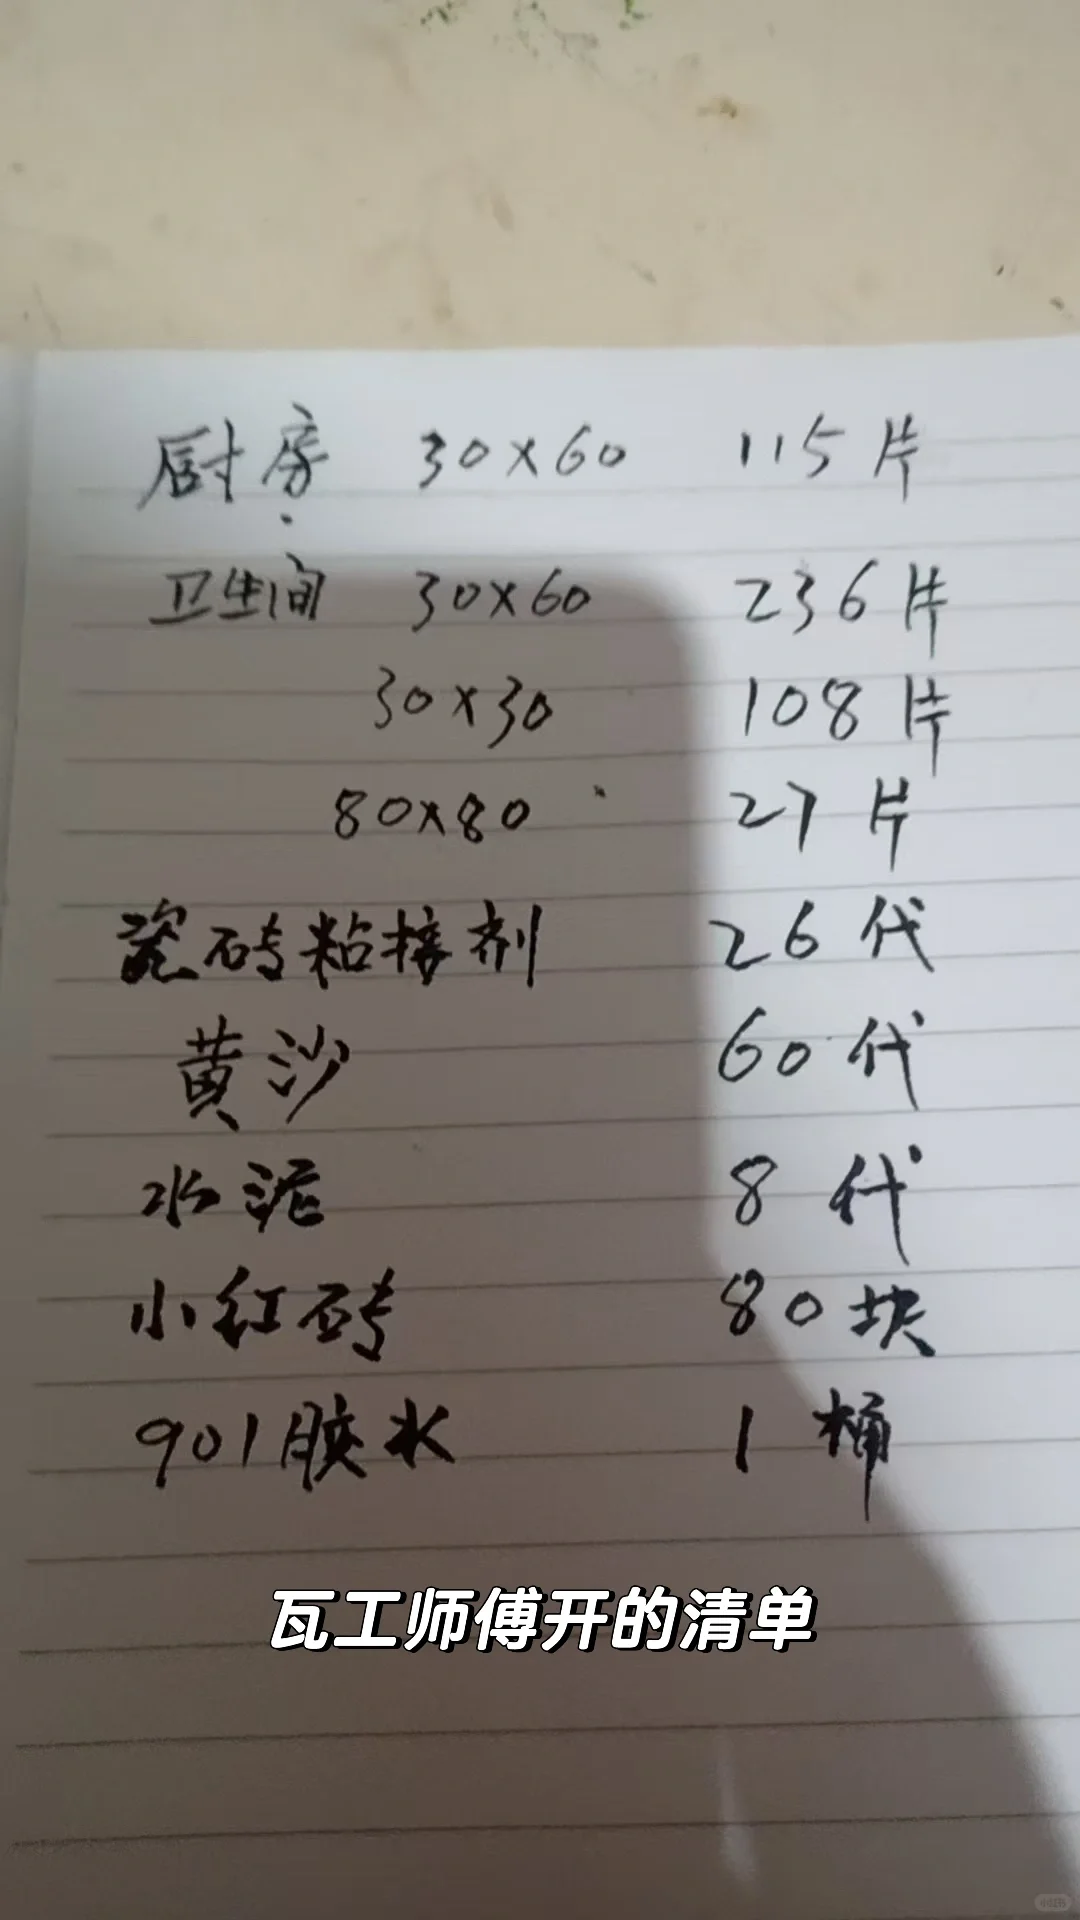 厨房 30×60 115片
卫生间 30×60 236片
30×30 108片
80×80 27片
瓷砖粘接剂 26代
黄沙 60代
水泥 8代
小红砖 80块
901胶水 1桶
瓦工师傅开的清单